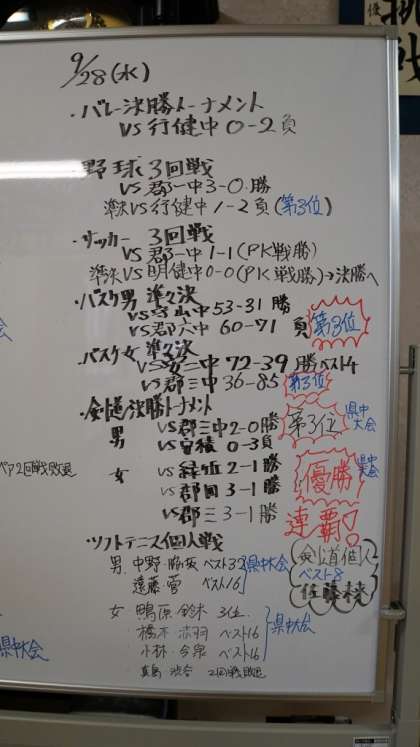 挑戦
9/28(水)
・バレー決勝トーナメント
VS 行健中 0-2 負
・野球 3回戦
VS 郡一中 3-0 勝
準決 VS 行健中 1-2 負 (第3位)
・サッカー 3回戦
VS 郡一中 1-1 (PK戦勝)
準決 VS 明健中 0-0 (PK戦勝)→決勝へ
・バスケ男 準々決
VS 守山中 53-31 勝
VS 郡六中 60-71 負 第3位
・バスケ女 準々決
VS 安二中 72-39 勝 ベスト4
VS 郡三中 36-85 第3位
・剣道/決勝トーナメント
男 VS 郡三中 2-0 勝 第3位 県中大会
VS 安積 0-3 負
女 VS 緑ヶ丘 2-1 勝 優勝 県中大会
VS 郡 3-1 勝
VS 郡三 3-1 勝 連覇!
ペア2回戦敗退
・ソフトテニス個人戦
男 中野・脇坂 ベスト32 県中大会
遠藤・菅 ベスト16
剣道個人
ベスト8
佐藤
女 鴨原・鈴木 3位
橋本・赤羽 ベスト16 県中大会
小林・今泉 ベスト16
真島 渋谷 2回戦敗退
県中大会